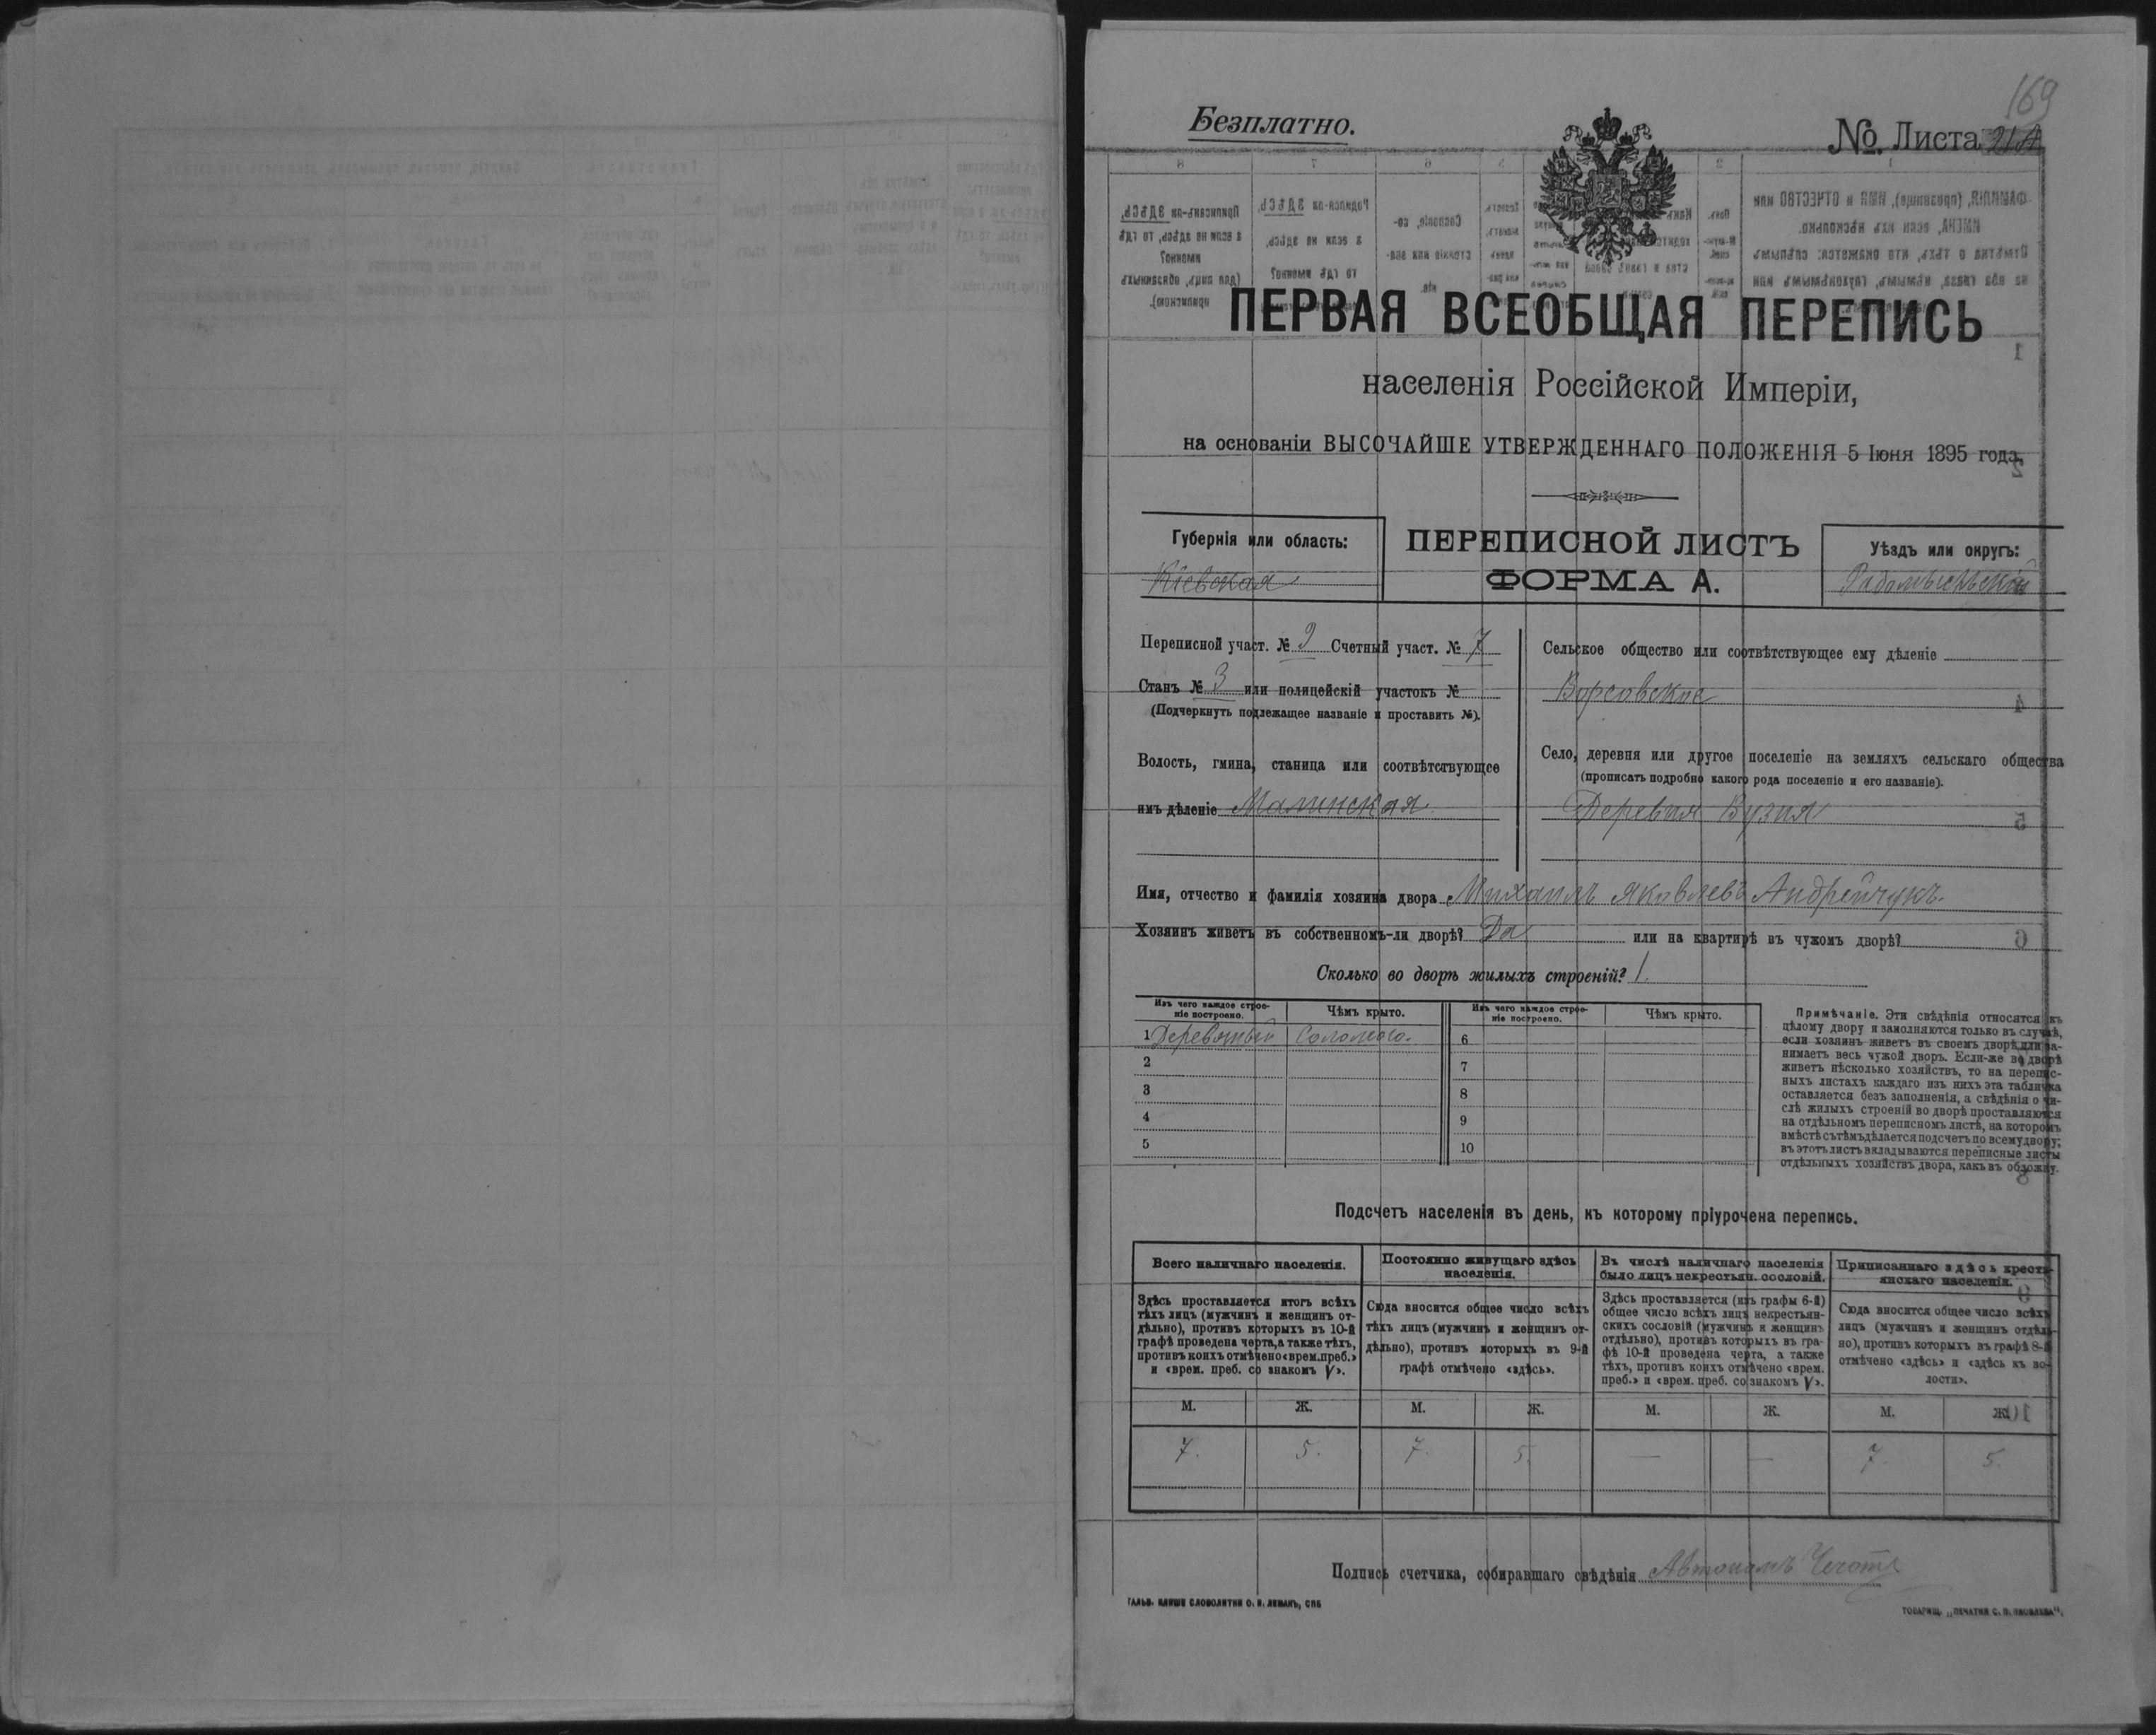 169
Безплатно.
№ Листа
ПЕРВАЯ ВСЕОБЩАЯ ПЕРЕПИСЬ
населенія Россійской Имперіи,
на основаніи ВЫСОЧАЙШЕ УТВЕРЖДЕННАГО ПОЛОЖЕНІЯ 5 Іюня 1895 года.
Губернія или область:
Кіевская
ПЕРЕПИСНОЙ ЛИСТЪ
ФОРМА А.
Уѣздъ или округъ:
Радомысльскій
Переписной участ. № 2 Счетный участ. № 7
Станъ № 3 или полицейскій участокъ №
(Подчеркнуть подлежащее названіе и проставить №).
Волость, гмина, станица или соотвѣтствующее
имъ дѣленіе Малинская
Сельское общество или соотвѣтствующее ему дѣленіе
Ворсовское
Село, деревня или другое поселеніе на земляхъ сельскаго общества
(прописать подробно какого рода поселеніе и его названіе).
Деревня Вузня
Имя, отчество и фамилія хозяина двора Михаилъ Яковлевъ Андрейчукъ.
Хозяинъ живетъ въ собственномъ-ли дворѣ? Да или на квартирѣ въ чужомъ дворѣ?
Сколько во дворѣ жилыхъ строеній? 1.
Изъ чего каждое строе-
ніе построено.
Чѣмъ крыто.
Изъ чего каждое строе-
ніе построено.
Чѣмъ крыто.
1 Деревяный Соломою. 6
2 7
3 8
4 9
5 10
Примѣчаніе. Эти свѣдѣнія относятся къ
цѣлому двору и заполняются только въ случаѣ,
если хозяинъ живетъ въ своемъ дворѣ или за-
нимаетъ весь чужой дворъ. Если-же во дворѣ
живетъ нѣсколько хозяйствъ, то на перепис-
ныхъ листахъ каждаго изъ нихъ эта табличка
оставляется безъ заполненія, а свѣдѣнія о чи-
слѣ жилыхъ строеній во дворѣ проставляются
на отдѣльномъ переписномъ листѣ, на которомъ
вмѣстѣ съ тѣмъ дѣлается подсчетъ по всему двору;
въ этотъ листъ вкладываются переписные листы
отдѣльныхъ хозяйствъ двора, какъ въ обложку.
Подсчетъ населенія въ день, къ которому пріурочена перепись.
Всего наличнаго населенія.
Здѣсь проставляется итогъ всѣхъ
тѣхъ лицъ (мужчинъ и женщинъ от-
дѣльно), противъ которыхъ въ 10-й
графѣ проведена черта, а также тѣхъ,
противъ коихъ отмѣчено «врем. преб.»
и «врем. преб. со знакомъ V».
Постоянно живущаго здѣсь
населенія.
Сюда вносится общее число всѣхъ
тѣхъ лицъ (мужчинъ и женщинъ от-
дѣльно), противъ которыхъ въ 9-й
графѣ отмѣчено «здѣсь».
Въ числѣ наличнаго населенія
было лицъ некрестьян. сословій.
Здѣсь проставляется (изъ графы 6-й)
общее число всѣхъ лицъ некрестьян-
скихъ сословій (мужчинъ и женщинъ
отдѣльно), противъ которыхъ въ гра-
фѣ 10-й проведена черта, а также
тѣхъ, противъ коихъ отмѣчено «врем.
преб.» и «врем. преб. со знакомъ V».
Приписаннаго здѣсь кресть-
янскаго населенія.
Сюда вносится общее число всѣхъ
лицъ (мужчинъ и женщинъ отдѣль-
но), противъ которыхъ въ графѣ 8-й
отмѣчено «здѣсь» и «здѣсь къ во-
лости».
М. Ж. М. Ж. М. Ж. М. Ж.
7. 5. 7. 5. — — 7. 5.
Подпись счетчика, собиравшаго свѣдѣнія Автономъ
ГАЛЬВ. КЛИШЕ СЛОВОЛИТНИ О. И. ЛЕМАНЪ, СПБ
ТОВАРИЩ. „ПЕЧАТНЯ С. П. ЯКОВЛЕВА“.